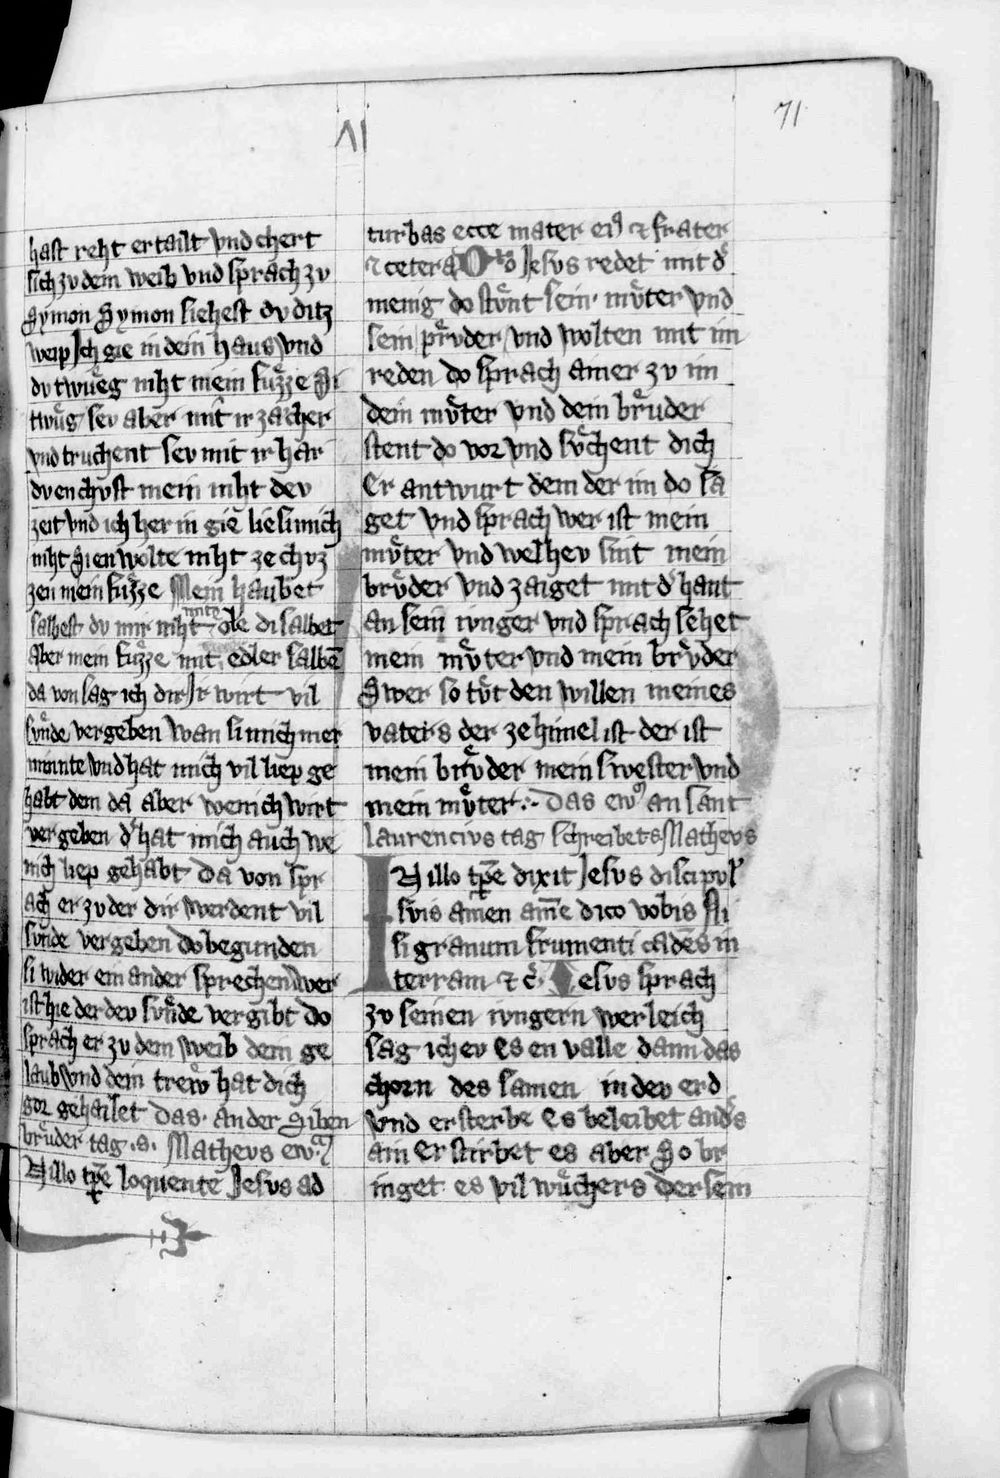 71
VI
hast reht ertailt vnd chert
sich zv dem weib vnd sprach zv
Symon Symon siehest dv ditz
weip Ich gie in dein haus vnd
dv twuͤeg niht mein fuͤzze Si
twuͤg sev aber mit ir zaͤcher
vnd truchent sev mit ir har
dv enchvst mein niht dev
zeit vnd ich her in gie lie si mich
niht Sien wolte niht ze chvz
zen mein fuͤzze Mein haubet
salbest dv mir niht mit ole di salbet
Aber mein fuͤzze mit edler salbe̅
da von sag ich dir Ir wirt vil
svͤnde vergeben wan si mich mer
minnte vnd hat mich vil liep ge
habt dem da aber wenich wirt
vergeben dˢ hat mich auch we
nich liep gehabt Da von spr
ach er zv der dir werdent vil
svͤnde vergeben Do begunden
si wider ein ander sprechen wer
ist hie der dev svͤnde vergibt do
sprach er zv dem weib dein ge
laub vnd dein trew hat dich
gar gehailet Das ander Siben
bruͤder tag .s. Matheus ew.
N illo tp̅e loquente Jesvs ad
turbas ecce mater eiꝰ ⁊ frater
⁊ cetera Do Jesvs redet mit dˢ
menig do stvͦnt sein mvͦter vnd
sein prvͦder vnd wolten mit im
reden do sprach ainer zv im
dein mvͦter vnd dein bruͦder
stent do vor vnd svͦchent dich
Er antwurt dem der im do sa
get vnd sprach wer ist mein
mvͦter vnd welhev sint mein
brvͦder vnd zaiget mit dˢ hant
an sein ivnger vnd sprach sehet
mein mvͦter vnd mein brvͦder
Swer so tvͦt den willen meines
vaters der ze himel ist der ist
mein brvͦder mein swester vnd
mein mvͦter Das ewꝰ an sant
laurencivs tag schreibet s Mathevs
IN illo tp̅e dixit Jesvs discipvlˢ
svis amen ame̅ dico vobis Ni
si granum frumenti cade̅s in
terram ⁊ c̅. Jesvs sprach
zv seinen ivngern werleich
sag ich ev Es en valle dann das
chorn des samen in dev erd
vnd ersterbe Es beleibet andˢs
ain Erstirbet es aber So br
inget es vil wuͦchers Der sein